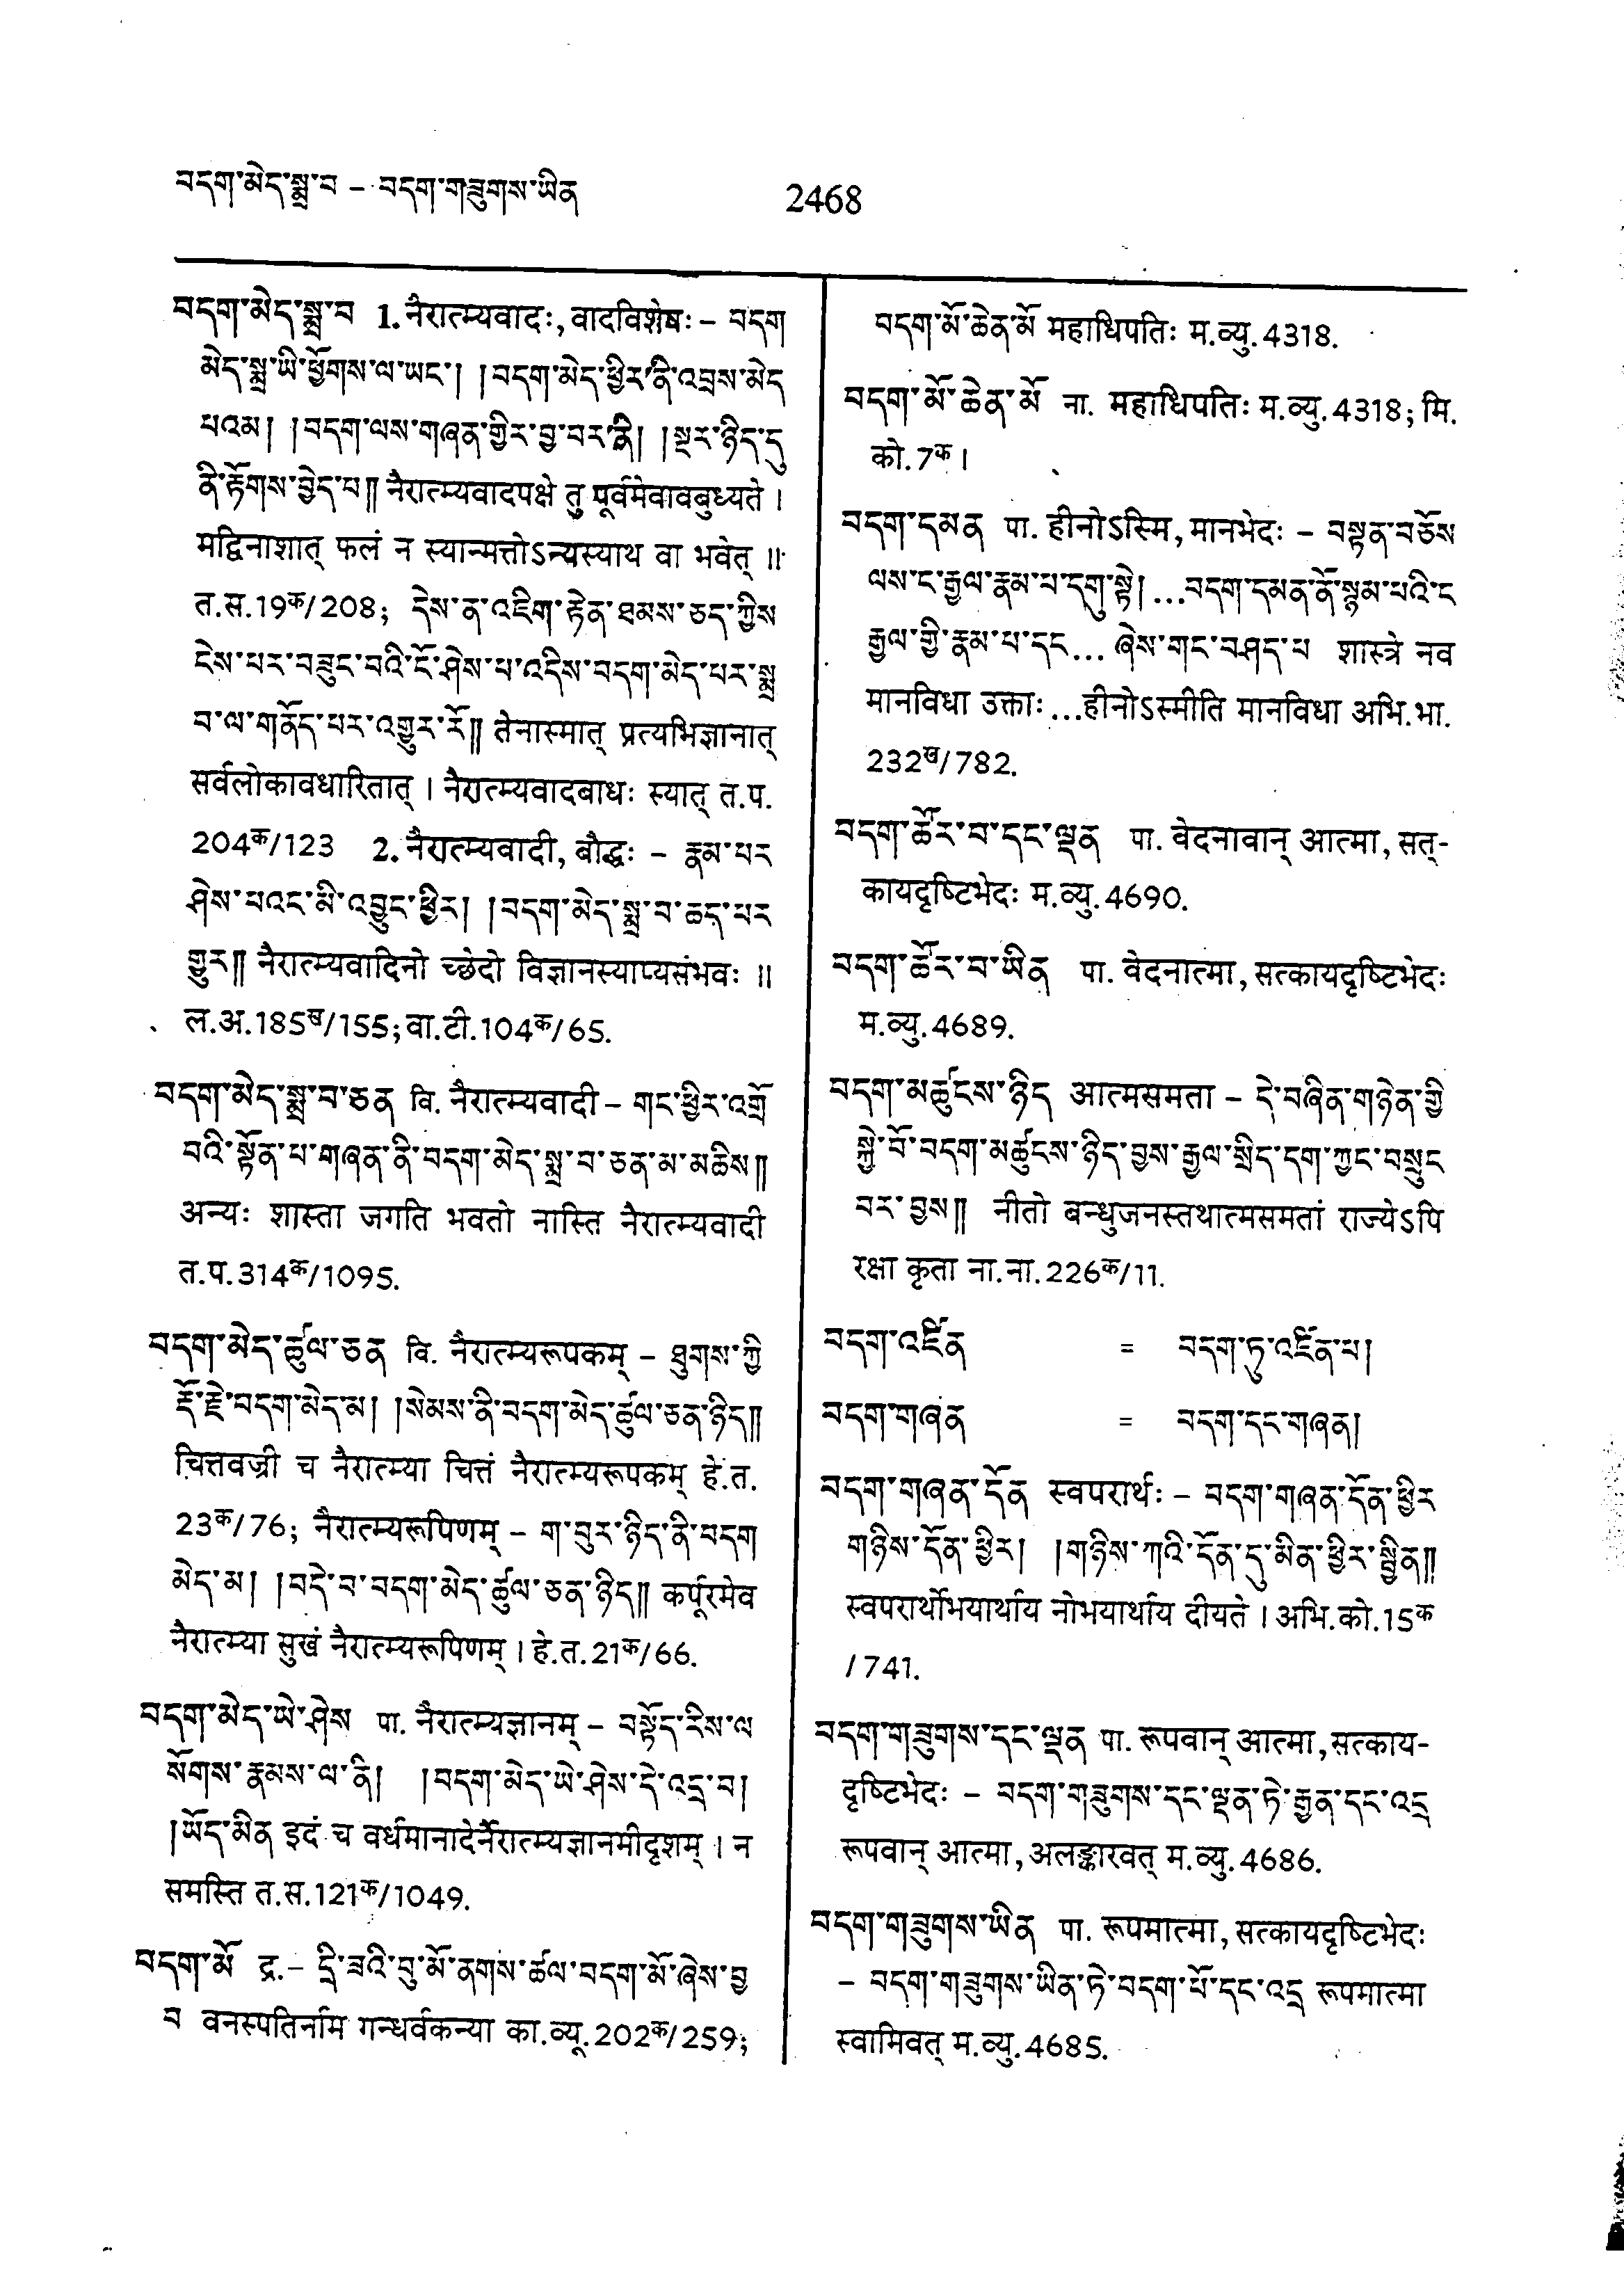 བདག་མེད་སྨྲ་བ – བདག་གཟུགས་ཡིན
2468
བདག་མེད་སྨྲ་བ 1. नैरात्म्यवादः, वादविशेषः – བདག
མེད་སྨྲ་ཡི་ཕྱོགས་ལ་ཡང་། །བདག་མེད་ཕྱིར་ནི་འབྲས་མེད
པའམ། །བདག་ལས་གཞན་གྱིར་བྱ་བར་ནི། །སྔར་ཉིད་དུ
ནི་རྟོགས་བྱེད་པ༎ नैरात्म्यवादपक्षे तु पूर्वमेवावबुध्यते ।
मद्विनाशात् फलं न स्यान्मत्तोऽन्यस्याथ वा भवेत् ॥
त.स.19क/208; དེས་ན་འཇིག་རྟེན་ཐམས་ཅད་ཀྱིས
ངེས་པར་བཟུང་བའི་ངོ་ཤེས་པ་འདིས་བདག་མེད་པར་སྨྲ
བ་ལ་གནོད་པར་འགྱུར་རོ༎ तेनास्मात् प्रत्यभिज्ञानात्
सर्वलोकावधारितात् । नैरात्म्यवादबाधः स्यात् त.प.
204क/123 2. नैरात्म्यवादी, बौद्धः – རྣམ་པར
ཤེས་པའང་མི་འབྱུང་ཕྱིར། །བདག་མེད་སྨྲ་བ་ཆད་པར
གྱུར༎ नैरात्म्यवादिनो च्छेदो विज्ञानस्याप्यसंभवः ॥
ल.अ.185ख/155; वा.टी.104क/65.
བདག་མེད་སྨྲ་བ་ཅན वि. नैरात्म्यवादी – གང་ཕྱིར་འགྲོ
བའི་སྟོན་པ་གཞན་ནི་བདག་མེད་སྨྲ་བ་ཅན་མ་མཆིས༎
अन्यः शास्ता जगति भवतो नास्ति नैरात्म्यवादी
त.प.314क/1095.
བདག་མེད་ཚུལ་ཅན वि. नैरात्म्यरूपकम् – ཐུགས་ཀྱི
རྡོ་རྗེ་བདག་མེད་མ། །སེམས་ནི་བདག་མེད་ཚུལ་ཅན་ཉིད༎
चित्तवज्री च नैरात्म्या चित्तं नैरात्म्यरूपकम् हे.त.
23क/76; नैरात्म्यरूपिणम् – ག་བུར་ཉིད་ནི་བདག
མེད་མ། །བདེ་བ་བདག་མེད་ཚུལ་ཅན་ཉིད༎ कर्पूरमेव
नैरात्म्या सुखं नैरात्म्यरूपिणम् । हे.त.21क/66.
བདག་མེད་ཡེ་ཤེས पा. नैरात्म्यज्ञानम् – བསྟོད་རིས་ལ
སོགས་རྣམས་ལ་ནི། །བདག་མེད་ཡེ་ཤེས་དེ་འདྲ་བ།
།ཡོད་མིན इदं च वर्धमानादेर्नैरात्म्यज्ञानमीदृशम् । न
समस्ति त.स.121क/1049.
བདག་མོ द्र.– དྲི་ཟའི་བུ་མོ་ནགས་ཚལ་བདག་མོ་ཞེས་བྱ
བ वनस्पतिर्नाम गन्धर्वकन्या का.व्यू.202क/259;
བདག་མོ་ཆེན་མོ महाधिपतिः म.व्यु.4318.
བདག་མོ་ཆེན་མོ ना. महाधिपतिः म.व्यु.4318; मि.
को.7क ।
བདག་དམན पा. हीनोऽस्मि, मानभेदः – བསྟན་བཅོས
ལས་ང་རྒྱལ་རྣམ་པ་དགུ་སྟེ། ...བདག་དམན་ནོ་སྙམ་པའི་ང
རྒྱལ་གྱི་རྣམ་པ་དང... ཞེས་གང་བཤད་པ शास्त्रे नव
मानविधा उक्ताः ...हीनोऽस्मीति मानविधा अभि.भा.
232ख/782.
བདག་ཚོར་བ་དང་ལྡན पा. वेदनावान् आत्मा, सत्-
कायदृष्टिभेदः म.व्यु.4690.
བདག་ཚོར་བ་ཡིན पा. वेदनात्मा, सत्कायदृष्टिभेदः
म.व्यु.4689.
བདག་མཚུངས་ཉིད आत्मसमता – དེ་བཞིན་གཉེན་གྱི
སྐྱེ་བོ་བདག་མཚུངས་ཉིད་བྱས་རྒྱལ་སྲིད་དག་ཀྱང་བསྲུང
བར་བྱས༎ नीतो बन्धुजनस्तथात्मसमतां राज्येऽपि
रक्षा कृता ना.ना.226क/11.
བདག་འཛིན = བདག་ཏུ་འཛིན་པ།
བདག་གཞན = བདག་དང་གཞན།
བདག་གཞན་དོན स्वपरार्थः – བདག་གཞན་དོན་ཕྱིར
གཉིས་དོན་ཕྱིར། །གཉིས་ཀའི་དོན་དུ་མིན་ཕྱིར་སྦྱིན༎
स्वपरार्थोभयार्थाय नोभयार्थाय दीयते । अभि.को.15क
/741.
བདག་གཟུགས་དང་ལྡན पा. रूपवान् आत्मा, सत्काय-
दृष्टिभेदः – བདག་གཟུགས་དང་ལྡན་ཏེ་རྒྱན་དང་འདྲ
रूपवान् आत्मा, अलङ्कारवत् म.व्यु.4686.
བདག་གཟུགས་ཡིན पा. रूपमात्मा, सत्कायदृष्टिभेदः
– བདག་གཟུགས་ཡིན་ཏེ་བདག་པོ་དང་འདྲ रूपमात्मा
स्वामिवत् म.व्यु.4685.